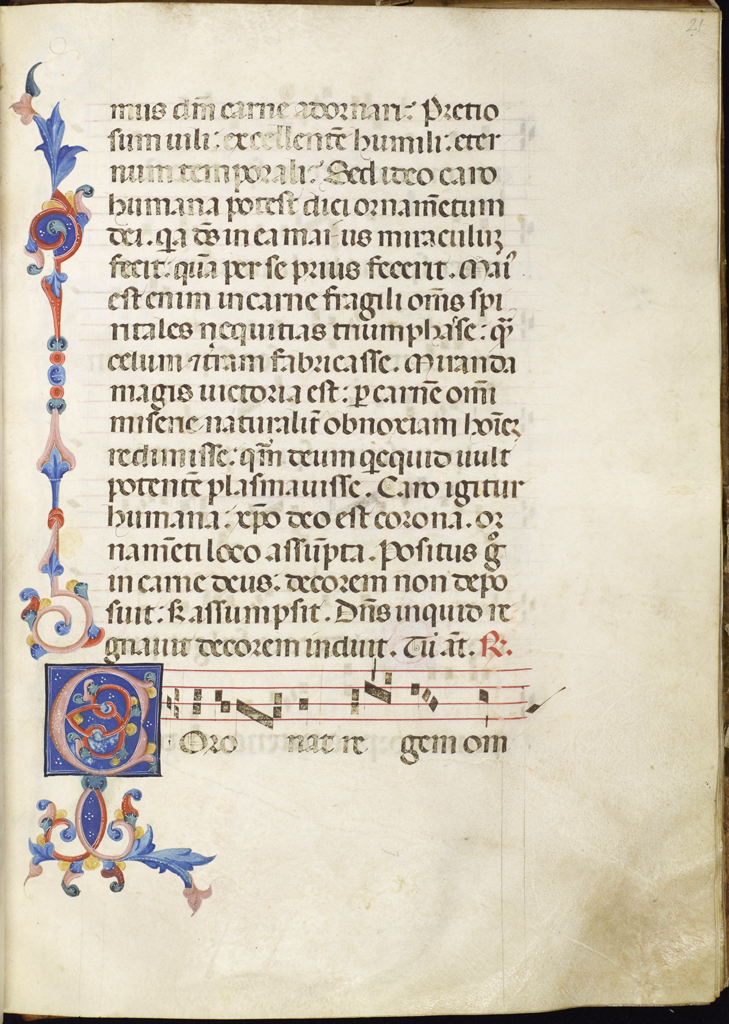 21
mus dm̄ carne adornari: Pretio
sum uili: excellentē humili: eter
num temporali: Sed ideo caro
humana potest dici ornam̄etum
dei. q̄a dē̄s in ea mai us miraculuꝫ
fecit: quā per se prius fecerit. Mai
est enim in carne fragili om̄s spi
ritales nequitias triumphas̄se: qͣ̄
celum ⁊ t̄ram fabricasse. Miranda
magis uictoria est: ꝑ carnē om̄i
miserie naturalit̄ obnoxiam hoīeꝫ
redimisse: qm̄ deum q̄cquid uult
potentē plasmauisse. Caro igitur
humana: xp̄o deo est corona. or
nam̄eti loco assūpta. Positus gͦ
in carne deus: decorem non depo
suit: sꝫ assumpsit. Dn̄s inquid re
gnauit decorem induit. Tū āt. R̵.
COro nat re gem om